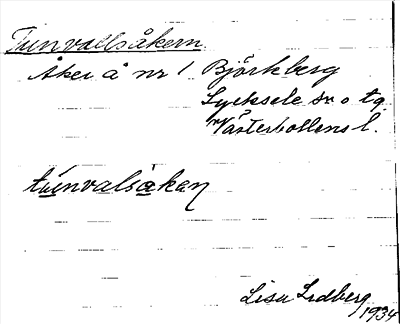 Tunvallsåkern
Åker å nr 1 Björkberg
Lycksele sn o tg.
Västerbottens l.
tunvalsåkan
Lisa Lidberg 1934